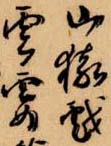 山猿戲
雲